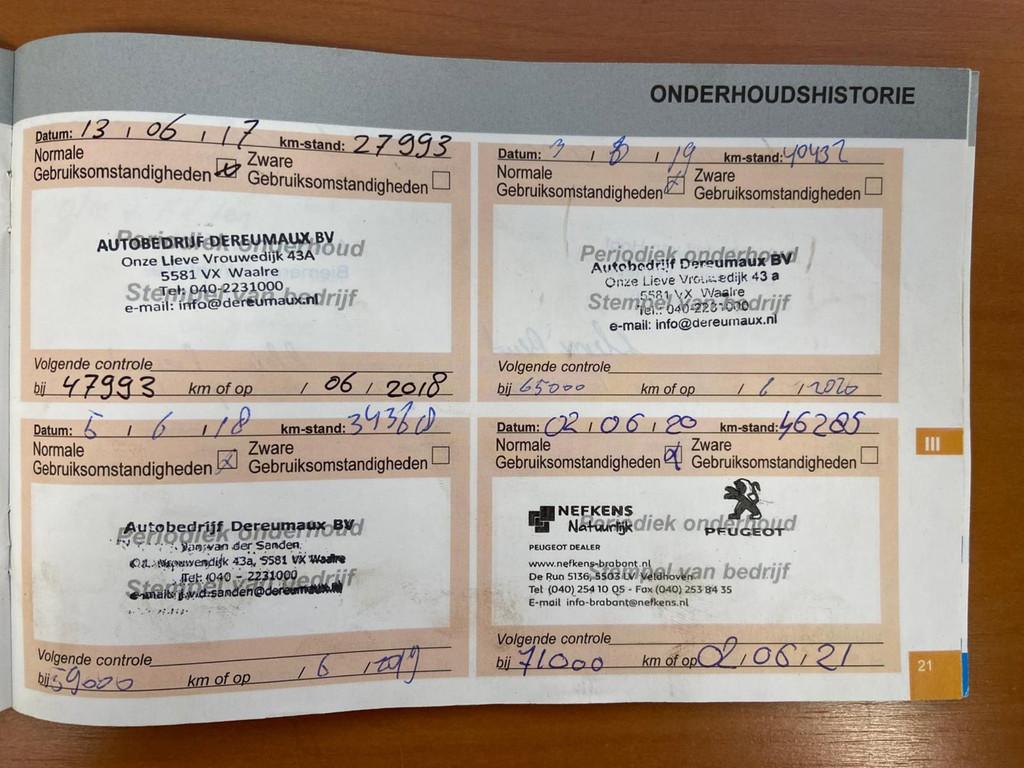 ONDERHOUDSHISTORIE
Datum: 13 / 06 / 17 km-stand: 27993
Normale
Gebruiksomstandigheden
Zware
Gebruiksomstandigheden
Periodiek onderhoud
Stempel van bedrijf
AUTOBEDRIJF DEREUMAUX BV
Onze Lieve Vrouwedijk 43A
5581 VX Waalre
Tel: 040-2231000
e-mail: info@dereumaux.nl
Volgende controle
bij 47993 km of op / 06 / 2018
Datum: 5 / 6 / 18 km-stand:
Normale
Gebruiksomstandigheden
Zware
Gebruiksomstandigheden
Periodiek onderhoud
Stempel van bedrijf
Autobedrijf Dereumaux BV
van der Sanden
43a, 5581 VX Waalre
Tel: 040 - 2231000
e-mail: j.v.d.sanden@dereumaux.nl
Volgende controle
bij 59000 km of op / 6 / 2019
Datum: 3 / 8 / 19 km-stand: 40432
Normale
Gebruiksomstandigheden
Zware
Gebruiksomstandigheden
Periodiek onderhoud
Stempel van bedrijf
Autobedrijf Dereumaux BV
Onze Lieve Vrouwedijk 43 a
5581 VX Waalre
Tel.: 040-2231000
e-mail: info@dereumaux.nl
Volgende controle
bij 65000 km of op / 6 / 2020
Datum: 02 / 06 / 20 km-stand: 46285
Normale
Gebruiksomstandigheden
Zware
Gebruiksomstandigheden
Periodiek onderhoud
Stempel van bedrijf
NEFKENS
Natuurlijk
PEUGEOT
PEUGEOT DEALER
www.nefkens-brabant.nl
De Run 5136, 5503 LV Veldhoven
Tel (040) 254 10 05 - Fax (040) 253 84 35
E-mail info-brabant@nefkens.nl
Volgende controle
bij 71000 km of op 02 / 06 / 21
III
21